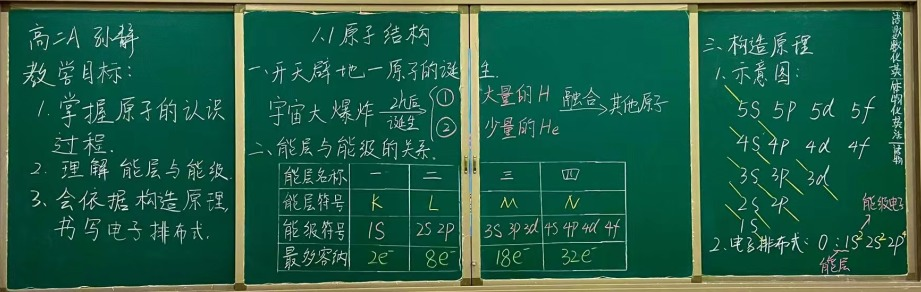 高二A 孙静
教学目标:
1. 掌握原子的认识
过程.
2. 理解能层与能级.
3. 会依据构造原理,
书写电子排布式.
1.1 原子结构
一、开天辟地—原子的诞生.
宇宙大爆炸 2h后 诞生 ① 大量的H 融合 其他原子
② 少量的He
二、能层与能级的关系.
能层名称 一 二 三 四
能层符号 K L M N
能级符号 1S 2S 2P 3S 3P 3d 4S 4P 4d 4f
最多容纳 2e⁻ 8e⁻ 18e⁻ 32e⁻
三、构造原理
1. 示意图:
5S 5P 5d 5f
4S 4P 4d 4f
3S 3P 3d
2S 2P
1S
能级电子
2. 电子排布式: O: 1S² 2S² 2P⁴
能层